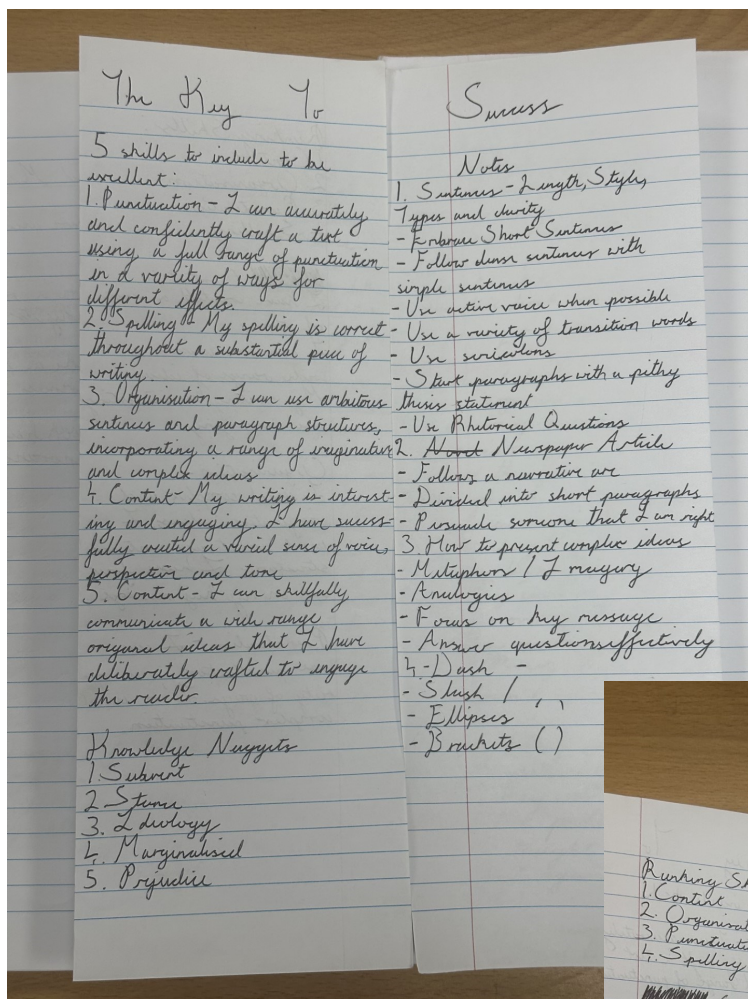 The Key To
5 skills to include to be
excellent:
1. Punctuation - I can accurately
and confidently craft a text
using a full range of punctuation
in a variety of ways for
different effects.
2. Spelling - My spelling is correct
throughout a substantial piece of
writing.
3. Organisation - I can use ambitous
sentences and paragraph structures,
incorporating a range of imaginative
and complex ideas
4. Content - My writing is interest-
ing and engaging. I have sucess-
fully created a varied sense of voice,
perspective and tone
5. Content - I can skillfully
communicate a wide range
origanal ideas that I have
deliberately crafted to engage
the reader.
Knowledge Nuggets
1. Subvert
2 Stance
3. Ideology
4. Marginalised
5. Prejudice
Success
Notes
1. Sentences - Length, Style,
Types and clarity
- Embrace Short Sentences
- Follow dense sentences with
simple sentences
- Use active voice when possible
- Use a variety of transition words
- Use semicolons
- Start paragraphs with a pithy
thesis statement
- Use Rhetorical Questions
2. Novel Newspaper Article
- Follows a narrative arc
- Divided into short paragraphs
- Persuade someone that I am right
3 How to present complex ideas
- Metaphors / Imagery
- Analogies
- Focus on key message
- Answer questions effectively
4 - Dash -
- Slash /
- Ellipses
- Brackets ( )
Ranking
1. Content
2. Organisat
3. Punctuat
4. Spelling